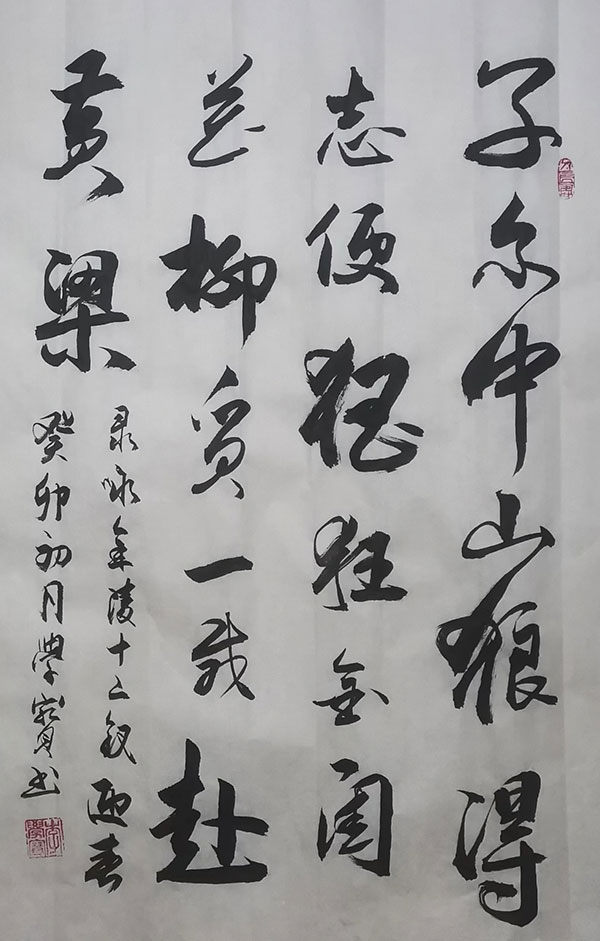 子系中山狼得
志便猖狂金闺
花柳质一载赴
黄梁
录咏金陵十二钗迎春
癸卯初月學寶书